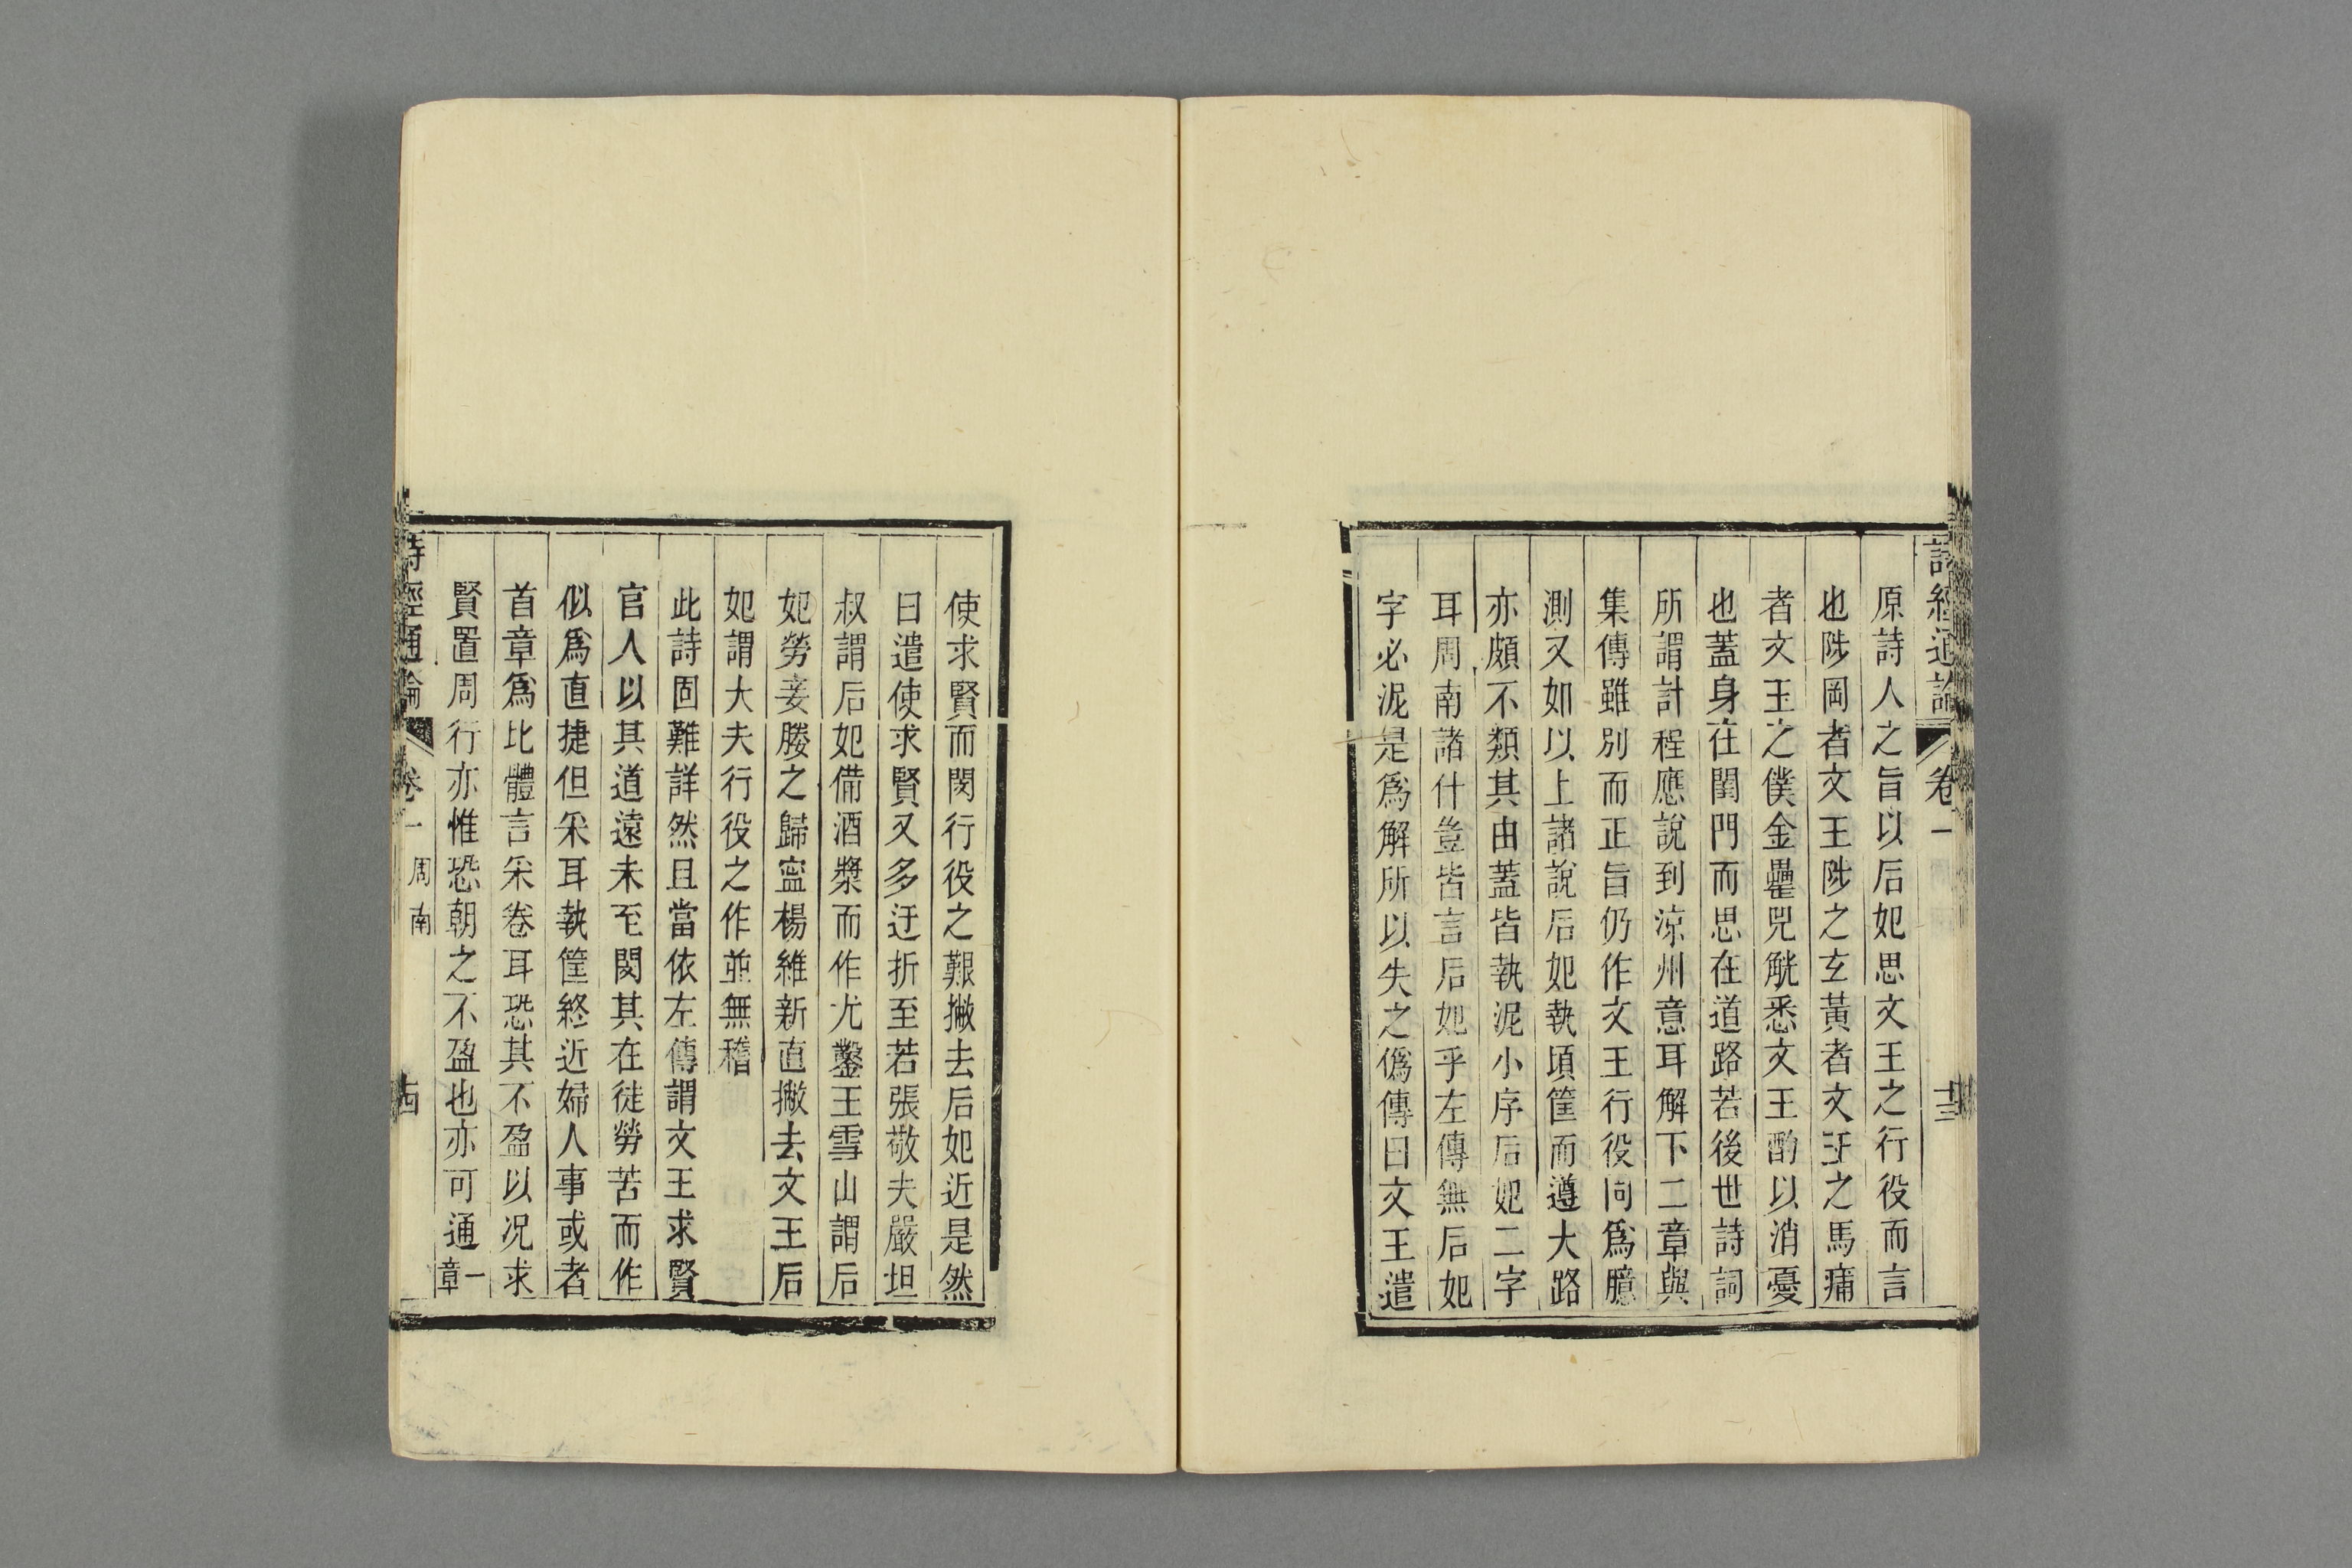 詩經通論 卷一 十三
原詩人之旨以后妃思文王之行役而言
也陟岡者文王陟之玄黃者文王之馬痡
者文王之僕金罍兕觥悉文王酌以消憂
也蓋身在閨門而思在道路若後世詩詞
所謂計程應說到涼州意耳解下二章與
集傳雖別而正旨仍作文王行役同爲臆
測又如以上諸說后妃執頃筐而遵大路
亦頗不類其由蓋皆執泥小序后妃二字
耳周南諸什豈皆言后妃乎左傳無后妃
字必泥是爲解所以失之僞傳曰文王遣
使求賢而閔行役之艱撇去后妃近是然
曰遣使求賢又多迂折至若張敬夫嚴坦
叔謂后妃備酒漿而作尤鑿王雪山謂后
妃勞妾媵之歸寍楊維新直撇去文王后
妃謂大夫行役之作並無稽
此詩固難詳然且當依左傳謂文王求賢
官人以其道遠未至閔其在徒勞苦而作
似爲直捷但采耳執筐終近婦人事或者
首章爲比體言采卷耳恐其不盈以況求
賢置周行亦惟恐朝之不盈也亦可通一章
詩經通論 卷一 周南 十四